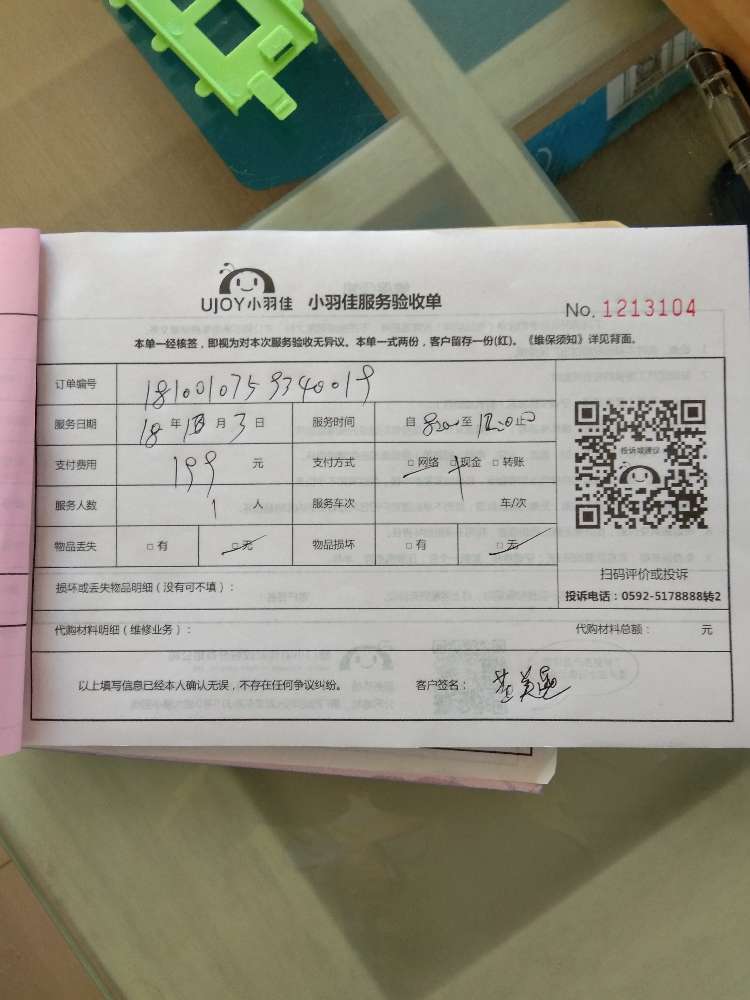 UJOY小羽佳 小羽佳服务验收单
No. 1213104
本单一经核签，即视为对本次服务验收无异议。本单一式两份，客户留存一份(红)。《维保须知》详见背面。
订单编号 1810010759340019
服务日期 18 年 10 月 3 日 服务时间 自 8:00 至 12:00 止
支付费用 199 元 支付方式 □ 网络 □ 现金 □ 转账
服务人数 1 人 服务车次 车/次
物品丢失 □ 有 □ 无 物品损坏 □ 有 □ 无
投诉或建议
扫码评价或投诉
投诉电话：0592-5178888转2
损坏或丢失物品明细（没有可不填）：
代购材料明细（维修业务）： 代购材料总额： 元
以上填写信息已经本人确认无误，不存在任何争议纠纷。 客户签名：